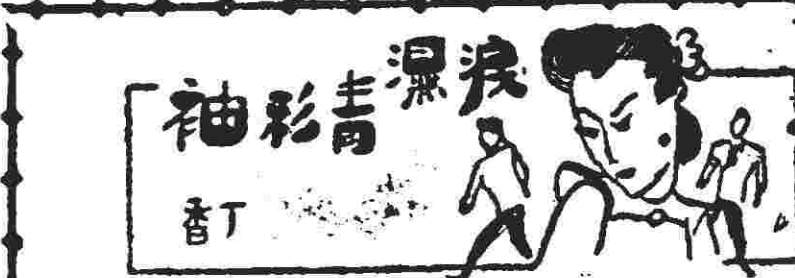 淚濕青衫袖
丁香